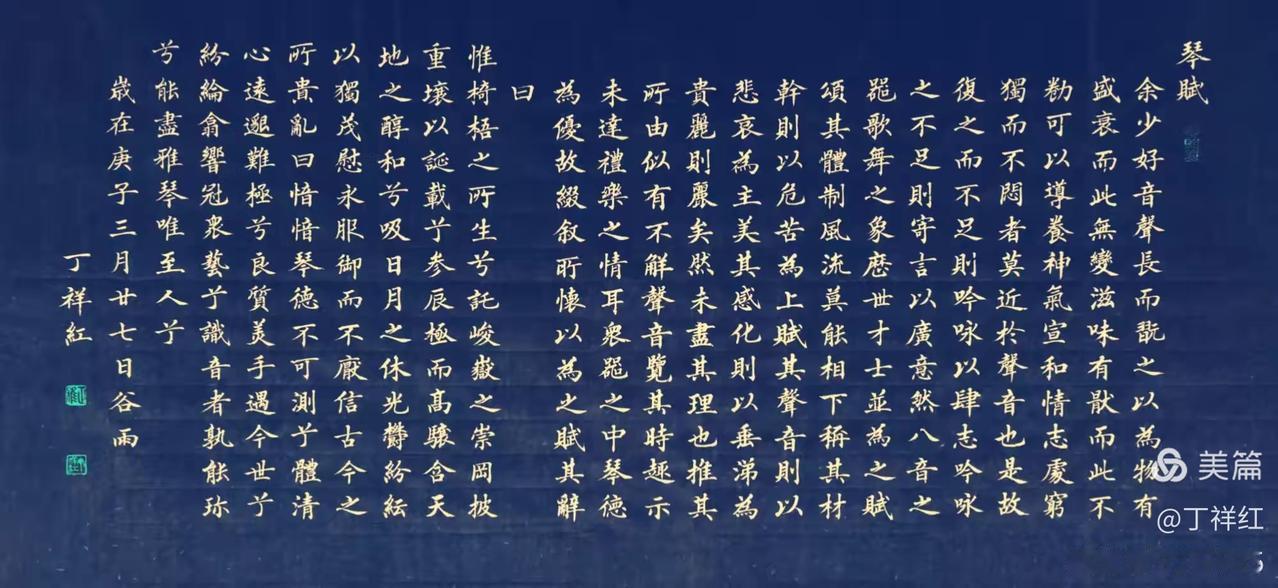 琴賦
余少好音聲長而翫之以為物有
盛衰而此無變滋味有猒而此不
勌可以導養神氣宣和情志處窮
獨而不悶者莫近於聲音也是故
復之而不足則吟咏以肆志吟咏
之不足則寄言以廣意然八音之
器歌舞之象歷世才士並為之賦
頌其體制風流莫能相下稱其材
幹則以危苦為上賦其聲音則以
悲哀為主美其感化則以垂涕為
貴麗則麗矣然未盡其理也推其
所由似有不解聲音覽其時趣示
未達禮樂之情耳衆器之中琴德
為優故綴叙所懷以為之賦其辭
曰
惟椅梧之所生兮託峻嶽之崇岡披
重壤以誕載兮参辰極而高驤含天
地之醇和兮吸日月之休光欝紛紜
以獨茂慰永服御而不厭信古今之
所貴亂曰愔愔琴德不可測兮體清
心遠邈難極兮良質美手遇今世兮
紛綸翕響冠衆藝兮識音者孰能珎
兮能盡雅琴唯至人兮
歲在庚子三月廿七日谷雨
丁祥紅
美篇
@丁祥红